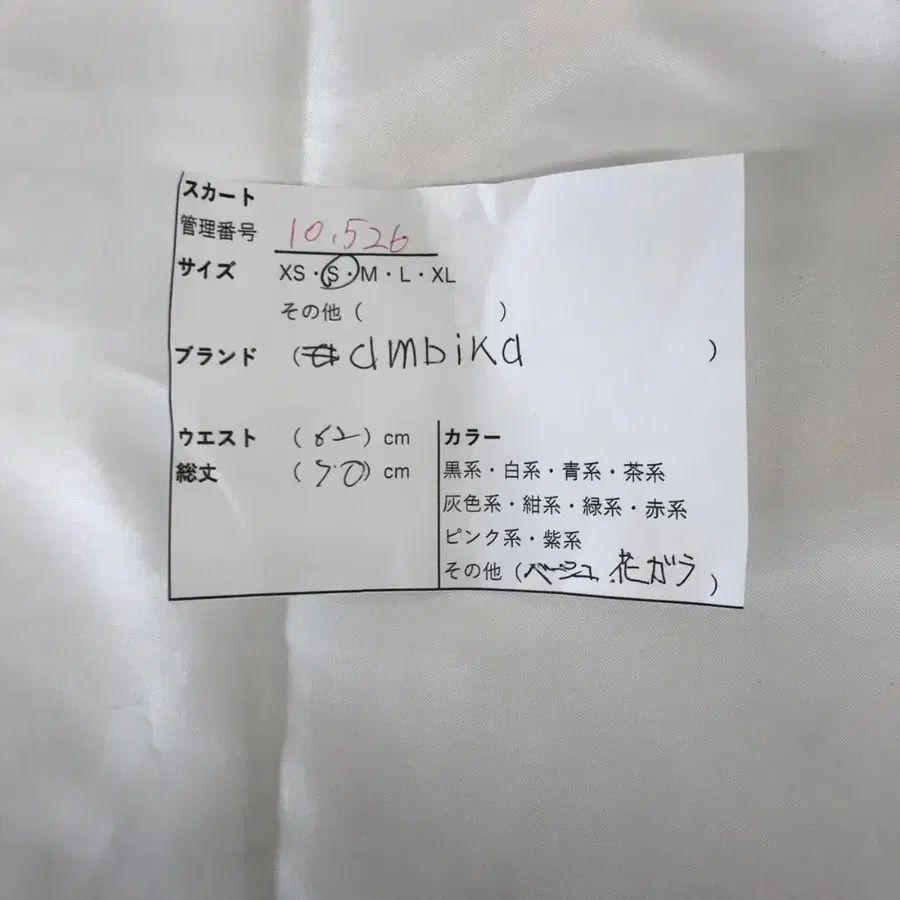 スカート
管理番号 10,526
サイズ XS・S・M・L・XL
その他（ ）
ブランド （ ambika ）
ウエスト （62）cm
総丈 （70）cm
カラー
黒系・白系・青系・茶系
灰色系・紺系・緑系・赤系
ピンク系・紫系
その他（ベージュ.花ガラ）